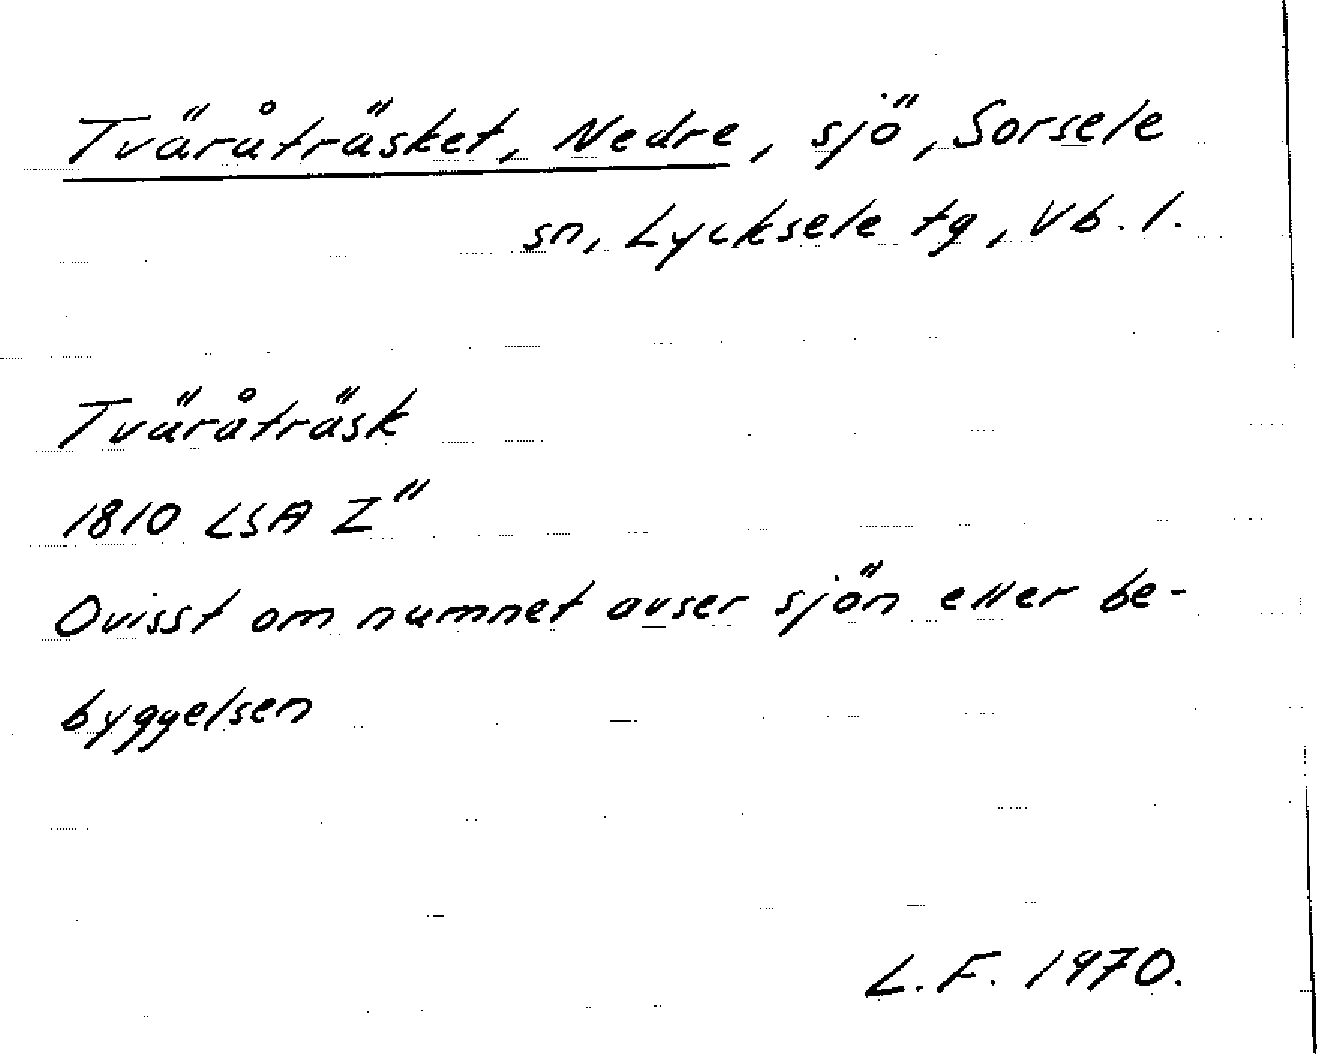 Tväråträsket, Nedre, sjö, Sorsele
sn, Lycksele tg, Vb. l.
Tväråträsk
1810 LSA Z"
Ovisst om namnet avser sjön eller be-
byggelsen
L.F. 1970.